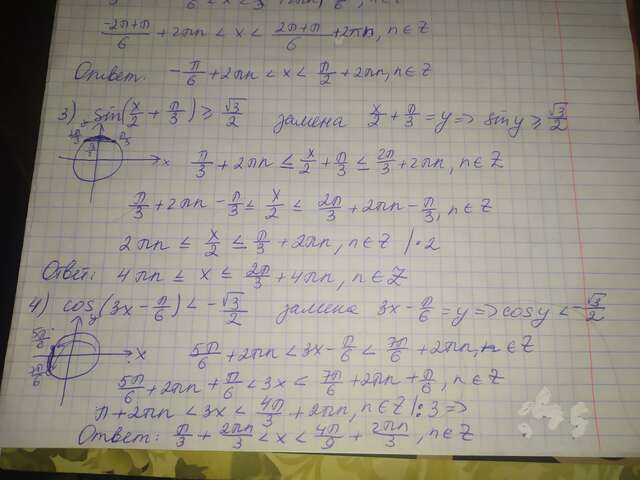 -2π+π/6 + 2πn < x < 2π+π/6 + 2πn, n∈Z
Ответ: -π/6 + 2πn < x < π/2 + 2πn, n∈Z
3) sin(x/2 + π/3) ≥ √3/2 замена x/2 + π/3 = y => sin y ≥ √3/2
x π/3 + 2πn ≤ x/2 + π/3 ≤ 2π/3 + 2πn, n∈Z
π/3 + 2πn - π/3 ≤ x/2 ≤ 2π/3 + 2πn - π/3, n∈Z
2πn ≤ x/2 ≤ π/3 + 2πn, n∈Z /·2
Ответ: 4πn ≤ x ≤ 2π/3 + 4πn, n∈Z
4) cos(3x - π/6) < -√3/2 замена 3x - π/6 = y => cos y < -√3/2
y
5π/6 x 5π/6 + 2πn < 3x - π/6 < 7π/6 + 2πn, n∈Z
7π/6 5π/6 + 2πn + π/6 < 3x < 7π/6 + 2πn + π/6, n∈Z
π + 2πn < 3x < 4π/3 + 2πn, n∈Z /:3 =>
Ответ: π/3 + 2πn/3 < x < 4π/9 + 2πn/3, n∈Z